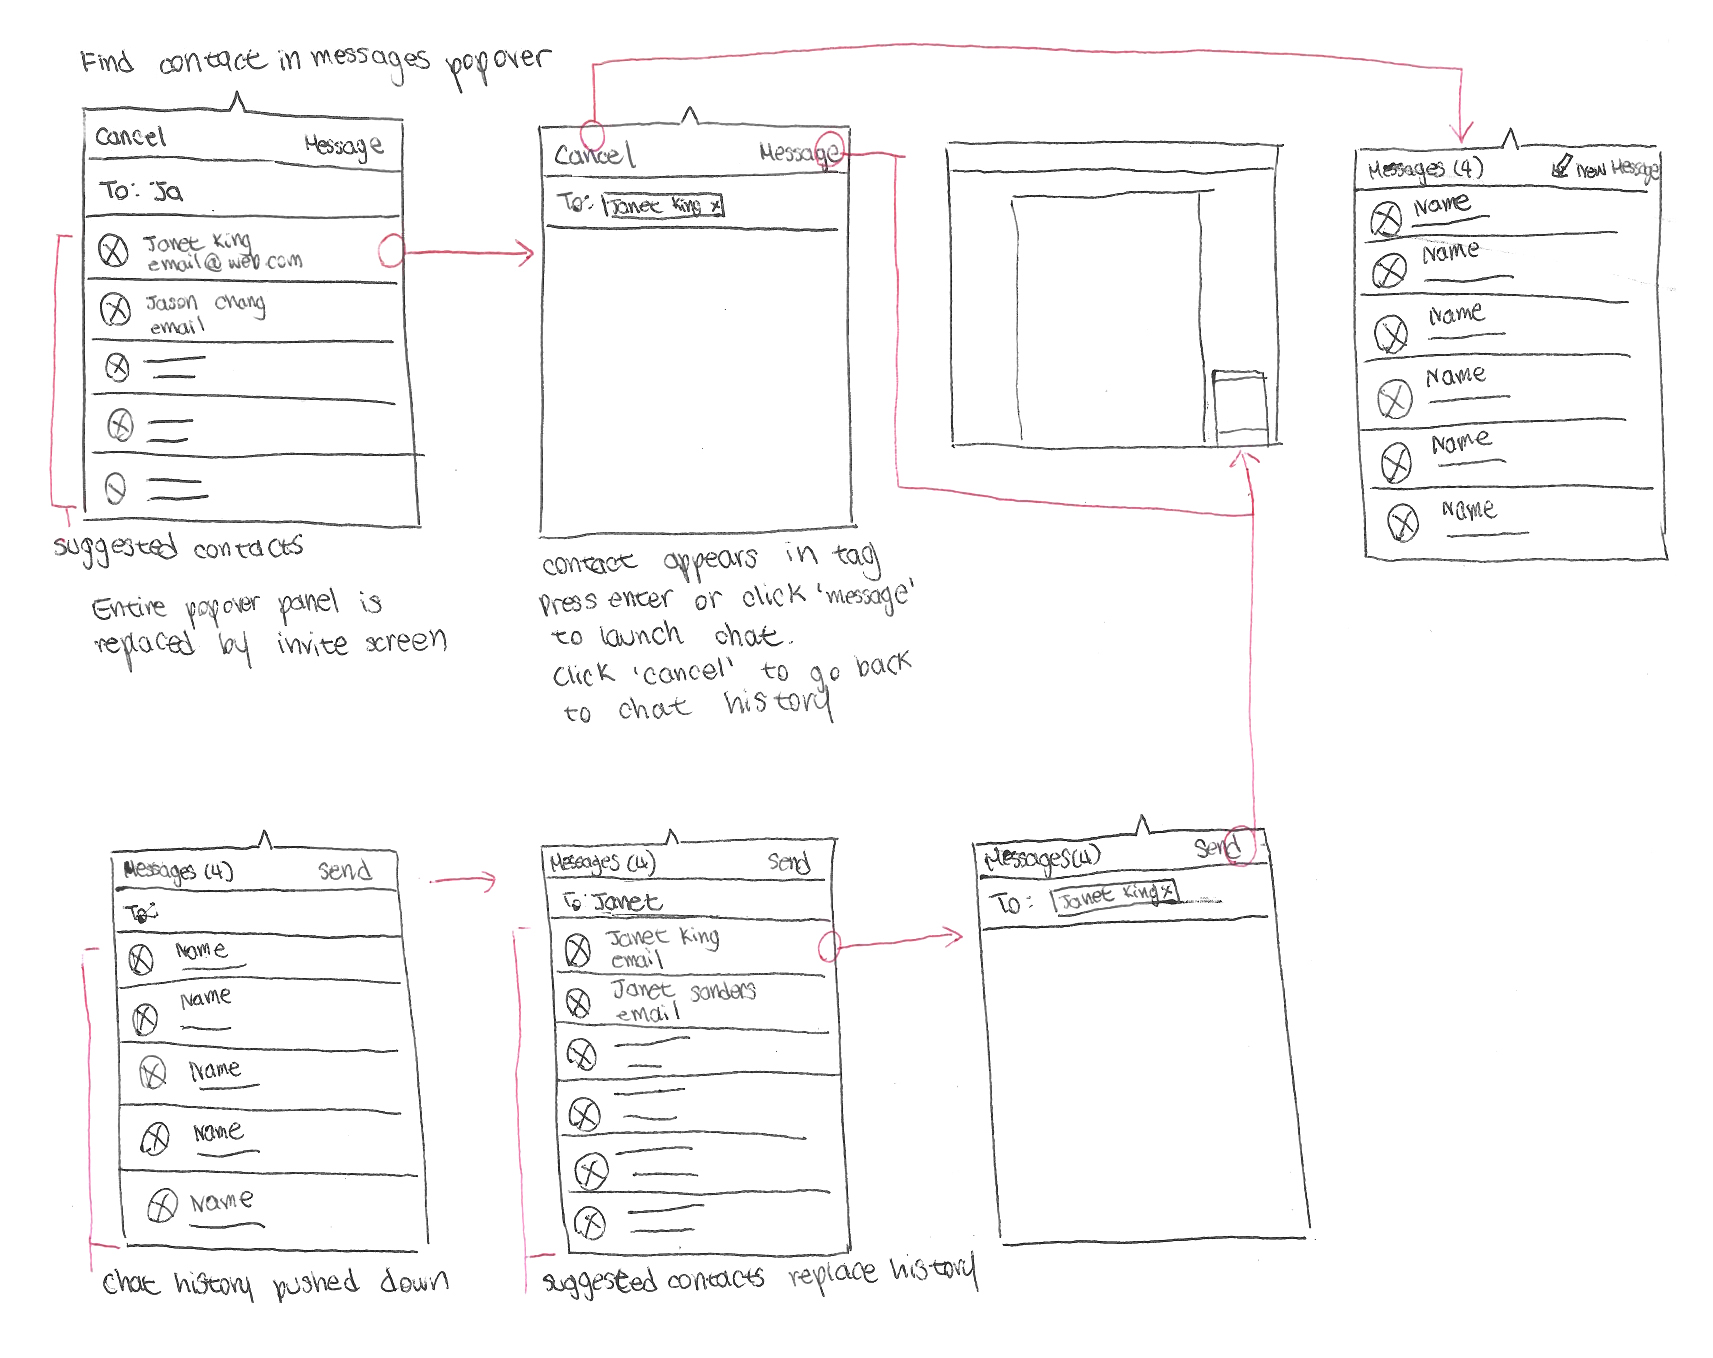 Find contact in messages popover
Cancel Message
To: Ja
Janet King
email@web.com
Jason Chang
email
suggested contacts
Entire popover panel is
replaced by invite screen
Cancel Message
To: Janet King x
contact appears in tag
press enter or click 'message'
to launch chat.
click 'cancel' to go back
to chat history
Messages (4) New Message
Name
Name
Name
Name
Name
Name
Messages (4) send
To:
Name
Name
Name
Name
Name
chat history pushed down
Messages (4) send
To: Janet
Janet King
email
Janet sanders
email
suggested contacts replace history
Messages (4) send
To: Janet King x